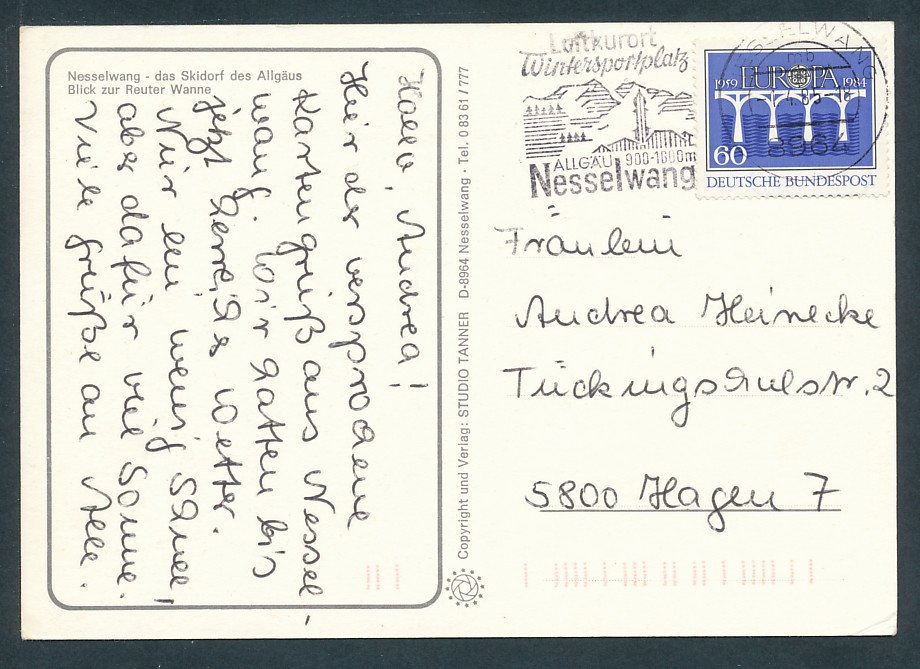 Nesselwang - das Skidorf des Allgäus
Blick zur Reuter Wanne
Hallo, Andrea!
Hier der versprochene
Kartengruß aus Nessel-
wang. Wir hatten bis
jetzt herrliches Wetter.
Nur ein wenig Schnee!
aber dafür viel Sonne.
Viele Grüße an Alle.
Copyright und Verlag: STUDIO TANNER D-8964 Nesselwang · Tel. 0 83 61 / 777
Luftkurort
Wintersportplatz
ALLGÄU 900-1600m
Nesselwang
NESSELWANG
mb
8964
1959 EUROPA 1984
60
DEUTSCHE BUNDESPOST
Fräulein
Andrea Heinecke
Tückingschulstr. 2
5800 Hagen 7